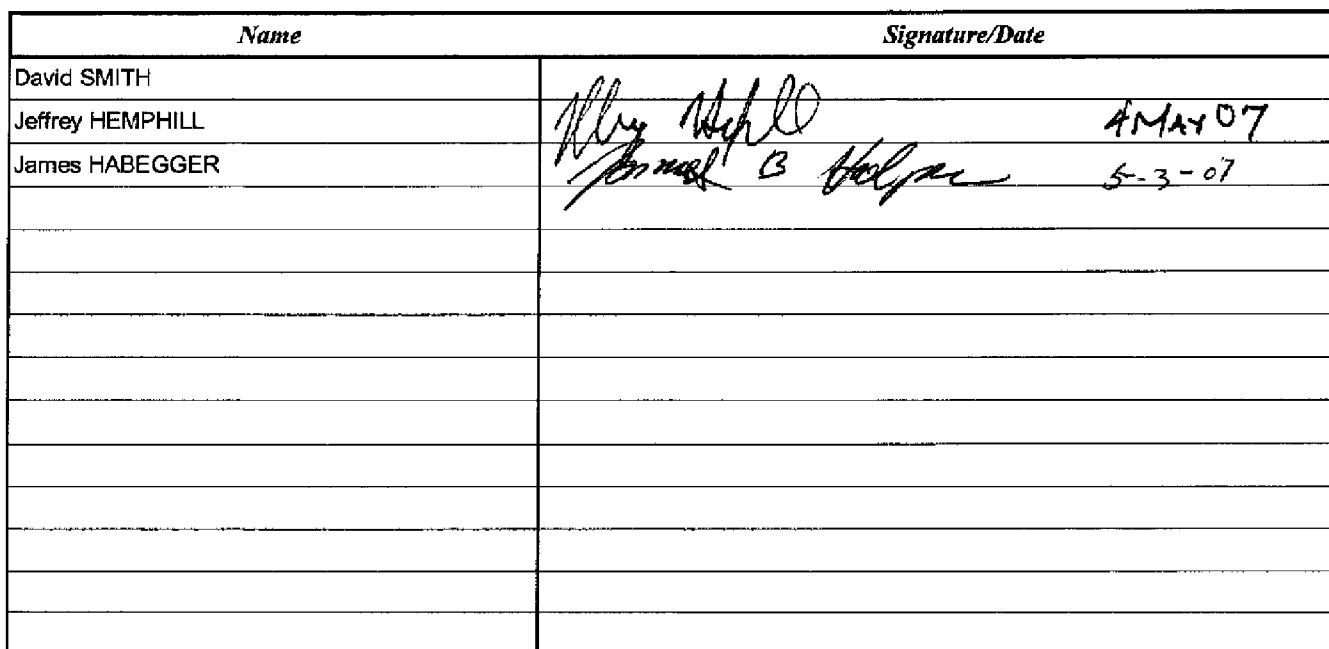 Name Signature/Date
David SMITH
Jeffrey HEMPHILL 4 MAY 07
James HABEGGER 5-3-07